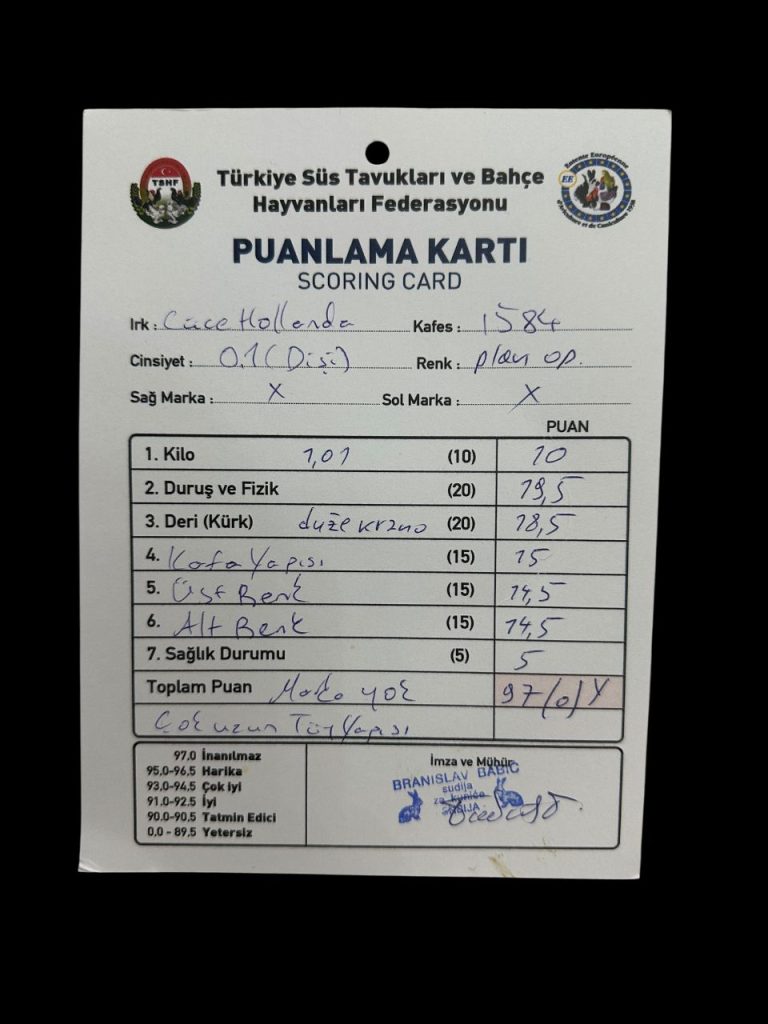 TSHF
Türkiye Süs Tavukları ve Bahçe
Hayvanları Federasyonu
Entente Européenne
EE
d'Aviculture et de Cuniculture 1938
PUANLAMA KARTI
SCORING CARD
Irk : Cüce Hollanda Kafes : 1584
Cinsiyet : 0.1 (Dişi) Renk : plan op.
Sağ Marka : X Sol Marka : X
PUAN
1. Kilo 1,01 (10) 10
2. Duruş ve Fizik (20) 19,5
3. Deri (Kürk) duže krzno (20) 18,5
4. Kafa Yapısı (15) 15
5. Üst Renk (15) 14,5
6. Alt Renk (15) 14,5
7. Sağlık Durumu (5) 5
Toplam Puan yok 97
Çok uzun Tüy Yapısı
97.0 İnanılmaz
95.0-96.5 Harika
93.0-94.5 Çok iyi
91.0-92.5 İyi
90.0-90.5 Tatmin Edici
0,0 - 89,5 Yetersiz
İmza ve Mühür
BRANISLAV BABIĆ
sudija
za kuniće
SRBIJA